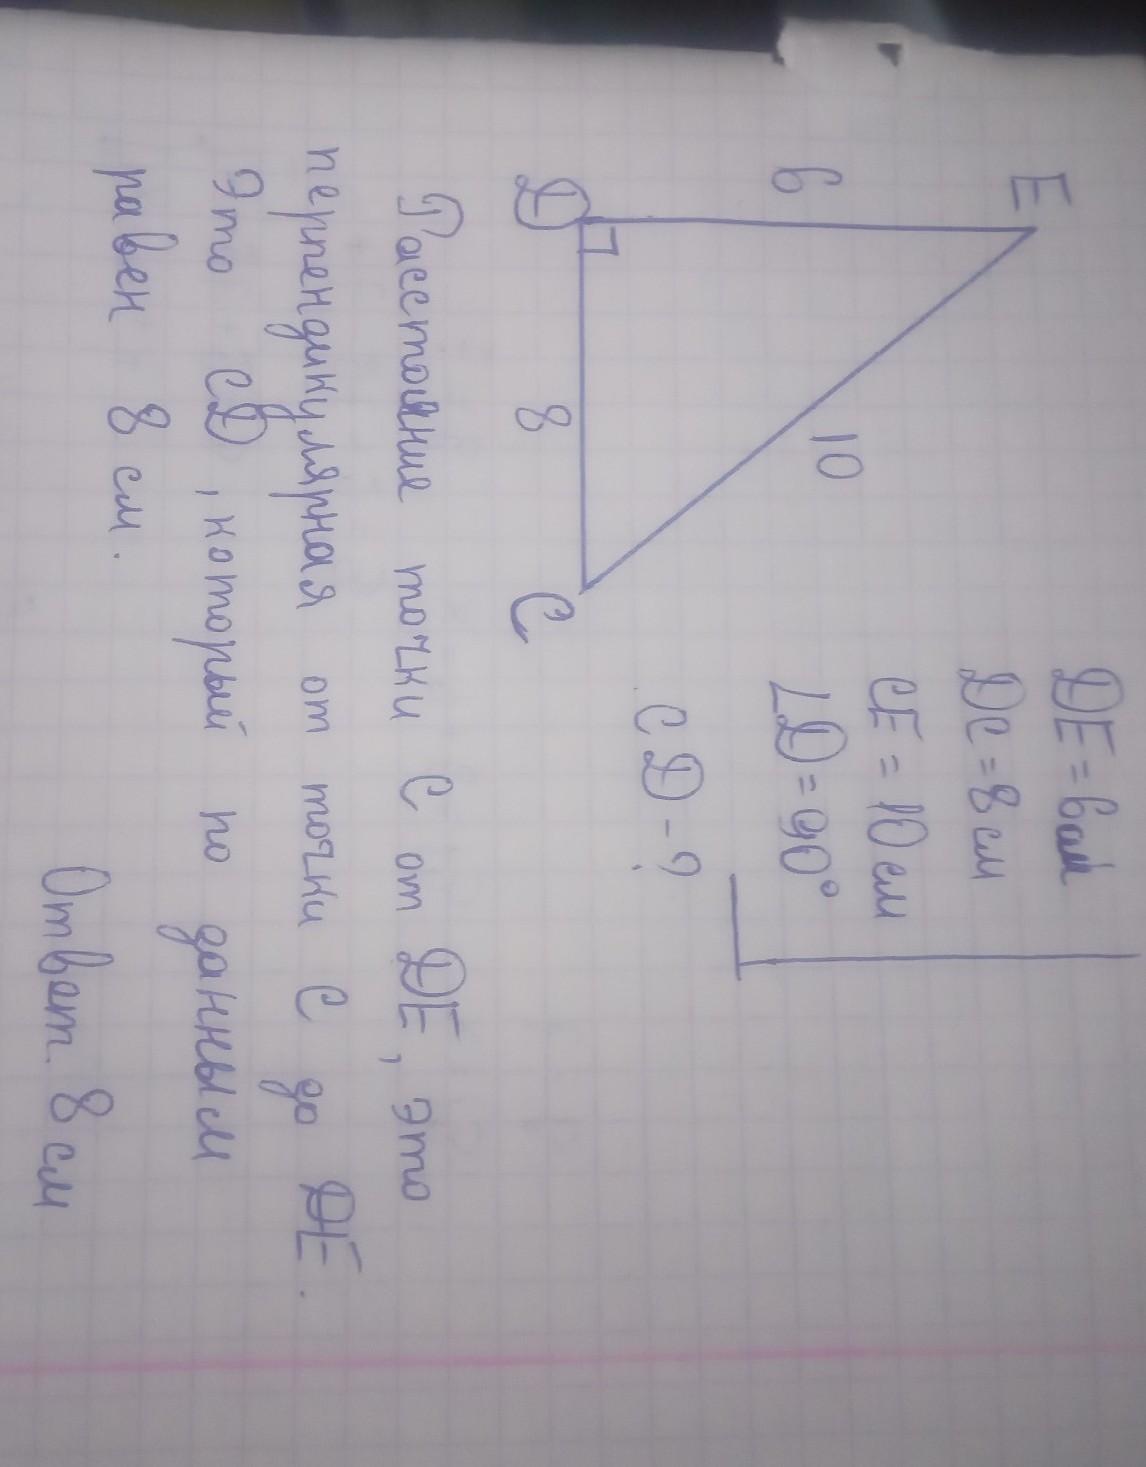 E
6
10
D
8
C
DE = 6 см
DC = 8 см
CE = 10 см
∠D = 90°
CD - ?
Расстояние точки C от DE, это
перпендикулярная от точки C до DE.
Это CD, который по данным
равен 8 см.
Ответ. 8 см